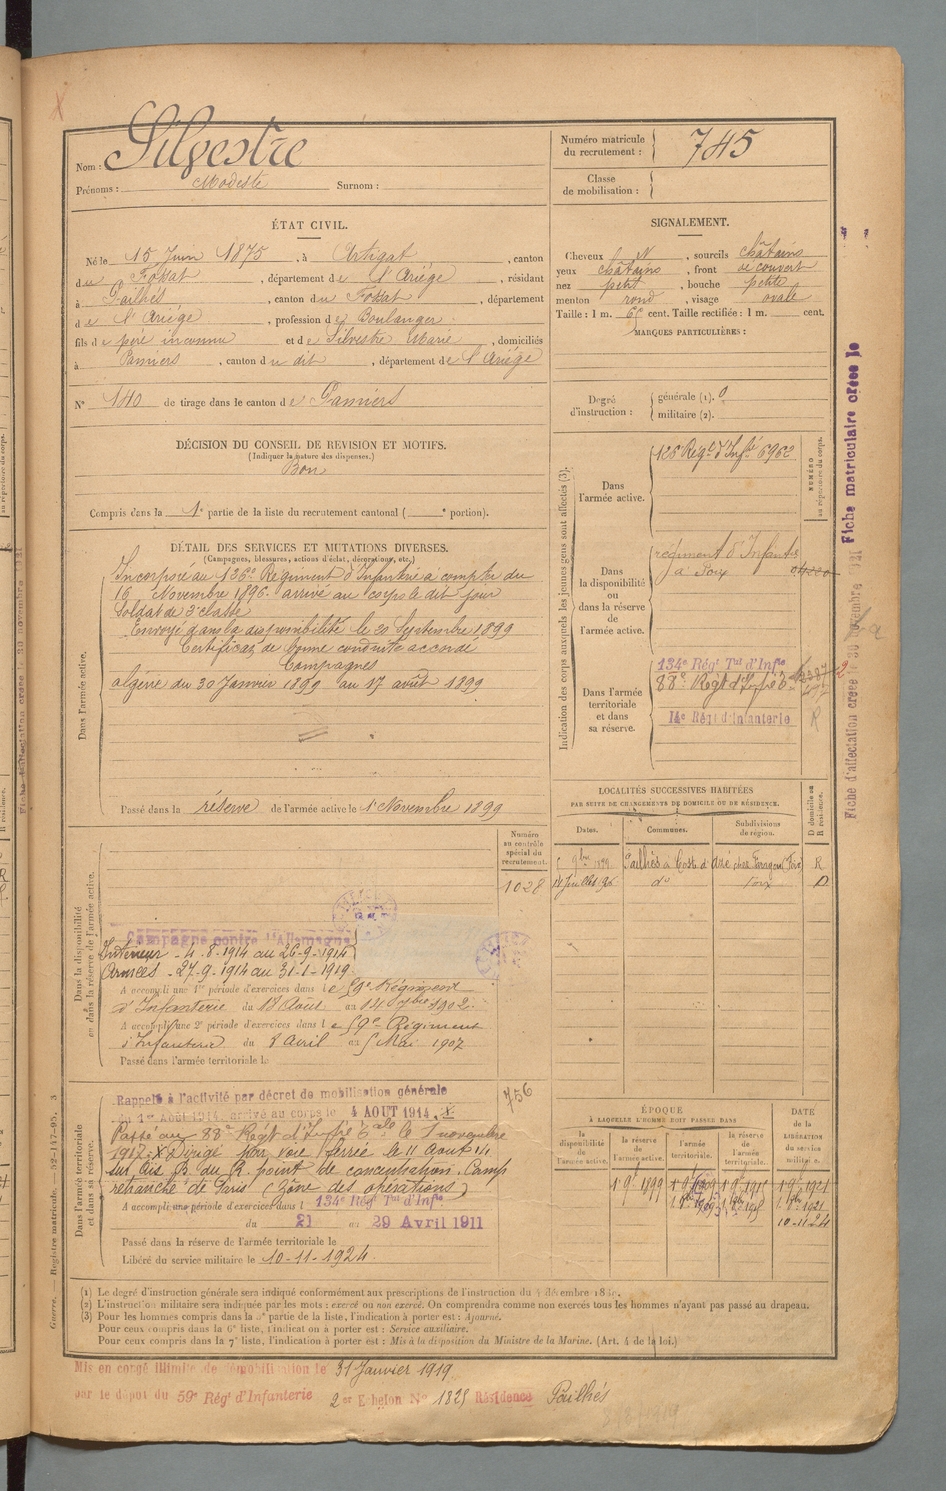 Nom : Silvestre
Prénoms : Modeste Surnom :
Numéro matricule du recrutement : 745
Classe de mobilisation :
ÉTAT CIVIL.
Né le 15 Juin 1875, à Artigat, canton
du Fossat, département de l'Ariége, résidant
à Pailhés, canton du Fossat, département
de l'Ariége, profession de Boulanger
fils de père inconnu et de Silvestre Marie, domiciliés
à Pamiers, canton du dit, département de l'Ariége
N° 140 de tirage dans le canton de Pamiers
SIGNALEMENT.
Cheveux N, sourcils châtains
yeux châtains, front découvert
nez petit, bouche petite
menton rond, visage ovale
Taille : 1 m. cent. Taille rectifiée : 1 m. cent.
MARQUES PARTICULIÈRES :
Degré d'instruction : générale (1). 0
militaire (2).
DÉCISION DU CONSEIL DE REVISION ET MOTIFS.
(Indiquer la nature des dispenses.)
Bon
Compris dans la 1e partie de la liste du recrutement cantonal ( e portion).
DÉTAIL DES SERVICES ET MUTATIONS DIVERSES.
(Campagnes, blessures, actions d'éclat, décorations, etc.)
Dans l'armée active.
Incorporé au 126e Régiment d'Infanterie à compter du
16 Novembre 1896. arrivé au corps le dit jour
Soldat de 2e classe
Envoyé dans la disponibilité le 20 Septembre 1899
Certificat de bonne conduite accordé
Campagnes
algérie du 30 Janvier 1899 au 17 août 1899
Passé dans la réserve de l'armée active le 1 Novembre 1899
Indication des corps auxquels les jeunes gens sont affectés (3).
NUMÉRO au répertoire du corps.
Dans l'armée active.
126 Régt d'Infie 6962
Dans la disponibilité ou dans la réserve de l'armée active.
régiment d'Infanterie
à Foix
Dans l'armée territoriale et dans sa réserve.
134e Régt Tal d'Infie
88e Régt d'Infie
14e Régt d'Infanterie
R
LOCALITÉS SUCCESSIVES HABITÉES
PAR SUITE DE CHANGEMENTS DE DOMICILE OU DE RÉSIDENCE.
Dates. Communes. Subdivisions de région. D domicile ou R résidence.
9bre 1899 Pailhès R
do Foix D
Numéro au contrôle spécial du recrutement.
1028
Dans la disponibilité ou dans la réserve de l'armée active.
Campagne contre l'Allemagne
Intérieur - 4-8-1914 au 26-9-1914
Armées - 27-9-1914 au 31-1-1919
A accompli une 1re période d'exercices dans le 59e Régiment
d'Infanterie du 18 Août au 14 7bre 1902.
A accompli une 2e période d'exercices dans le 59e Régiment
d'Infanterie du 8 Avril au 5 Mai 1907
Passé dans l'armée territoriale le
756
Dans l'armée territoriale et dans sa réserve.
Rappelé à l'activité par décret de mobilisation générale
du 1er Août 1914, arrivé au corps le 4 AOUT 1914. X
Passé au 88e Régt d'Infie le 1 novembre
1917. X Dirigé par voie ferrée le 11 Août 14
sur point de concentration. Camp
retranché de Paris (Zône des opérations)
A accompli une période d'exercices dans l 134e Régt Tal d'Infie
du 21 au 29 Avril 1911
Passé dans la réserve de l'armée territoriale le
Libéré du service militaire le 10-11-1924.
ÉPOQUE
À LAQUELLE L'HOMME DOIT PASSER DANS
la disponibilité de l'armée active. la réserve de l'armée active. l'armée territoriale. la réserve de l'armée territoriale.
DATE de la LIBÉRATION du service militaire.
1 9e 1899 1 9e 1909 1 9e 1915 1 9e 1921
10-11-24
(1) Le degré d'instruction générale sera indiqué conformément aux prescriptions de l'instruction du 4 décembre
(2) L'instruction militaire sera indiquée par les mots : exercé ou non exercé. On comprendra comme non exercés tous les hommes n'ayant pas passé au drapeau.
(3) Pour les hommes compris dans la 5e partie de la liste, l'indication à porter est : Ajourné.
Pour ceux compris dans la 6e liste, l'indication à porter est : Service auxiliaire.
Pour ceux compris dans la 7e liste, l'indication à porter est : Mis à la disposition du Ministre de la Marine. (Art. 4 de la loi.)
Mis en congé illimité de démobilisation le 31 Janvier 1919
par le dépôt du 59e Régt d'Infanterie 2e Echelon N° Résidence Pailhés
Guerre. — Registre matricule. — 52-147-95. 3
Fiche matriculaire créée le
Fiche d'affectation créée le 30 novembre 1931